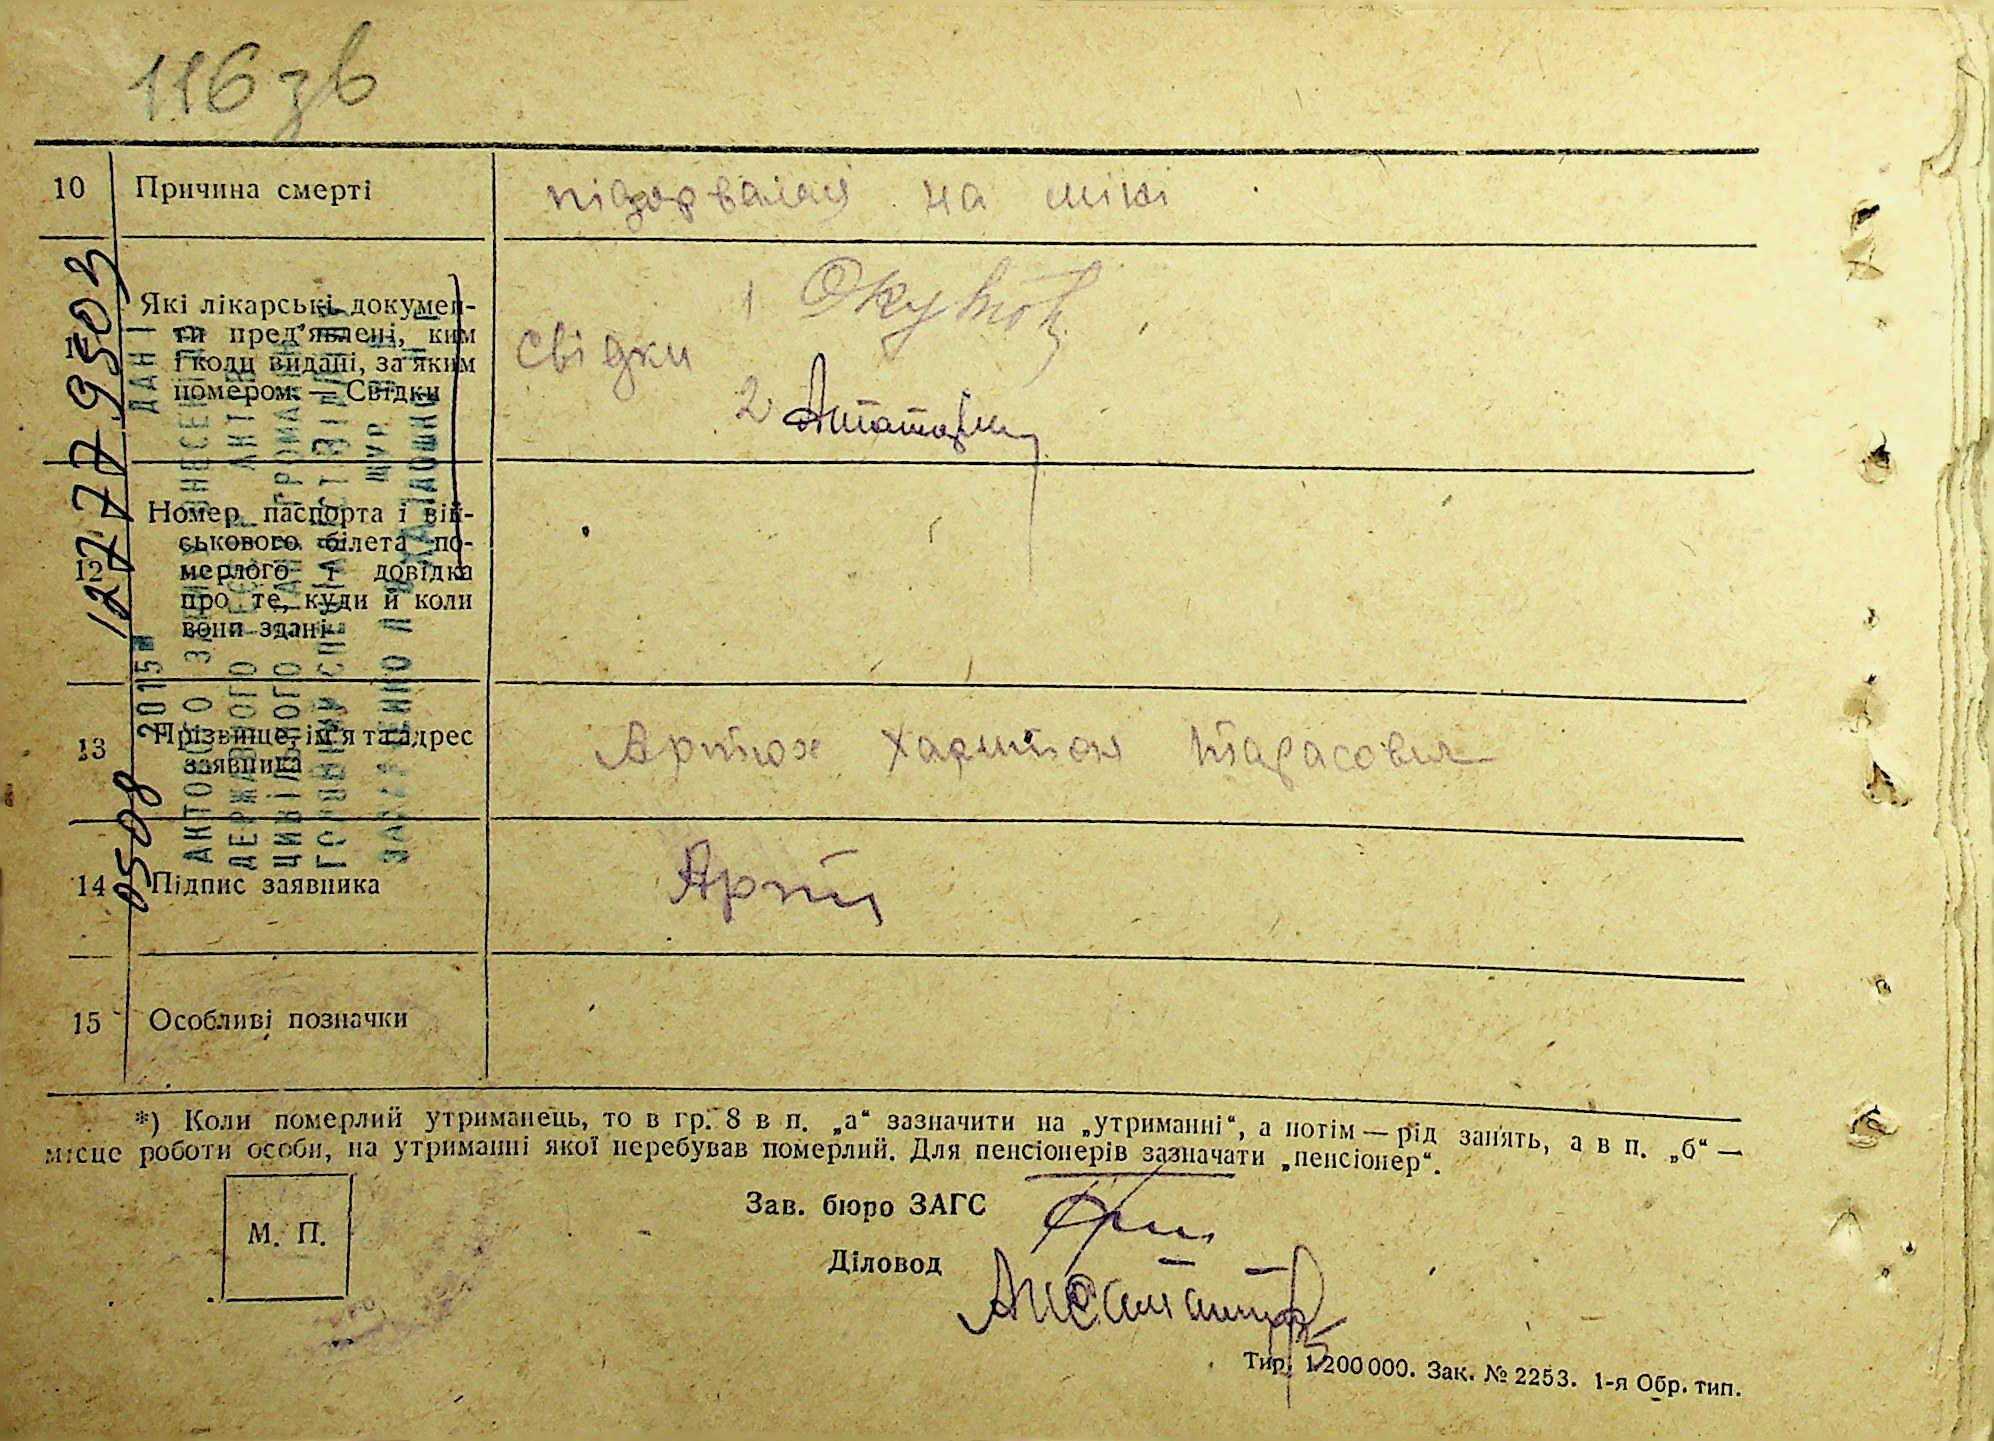 116 зв
10 Причина смерті підорвався на міні
Які лікарські докумен-
ти пред'явлені, ким
і коли видані, за яким
номером. — Свідки
Свідки 1
2
12 Номер паспорта і вій-
ськового білета по-
мерлого і довідка
про те, куди й коли
вони здані
13 Прізвище, ім'я та адрес
заявника
Артюх Харитон Тарасович
14 Підпис заявника
15 Особливі позначки
*) Коли померлий утриманець, то в гр. 8 в п. „а“ зазначити на „утриманні“, а потім — рід занять, а в п. „б“ —
місце роботи особи, на утриманні якої перебував померлий. Для пенсіонерів зазначати „пенсіонер“.
М. П.
Зав. бюро ЗАГС
Діловод
Тир. 1.200 000. Зак. № 2253. 1-я Обр. тип.
0508 2015 127779503
ДАНІ
АКТОВОГО ЗАПИСУ ВНЕСЕНІ ДО
ДЕРЖАВНОГО РЕЄСТРУ АКТІВ
ЦИВІЛЬНОГО СТАНУ ГРОМАДЯН
ГОЛОВНИЙ СПЕЦІАЛІСТ ВІДДІЛУ